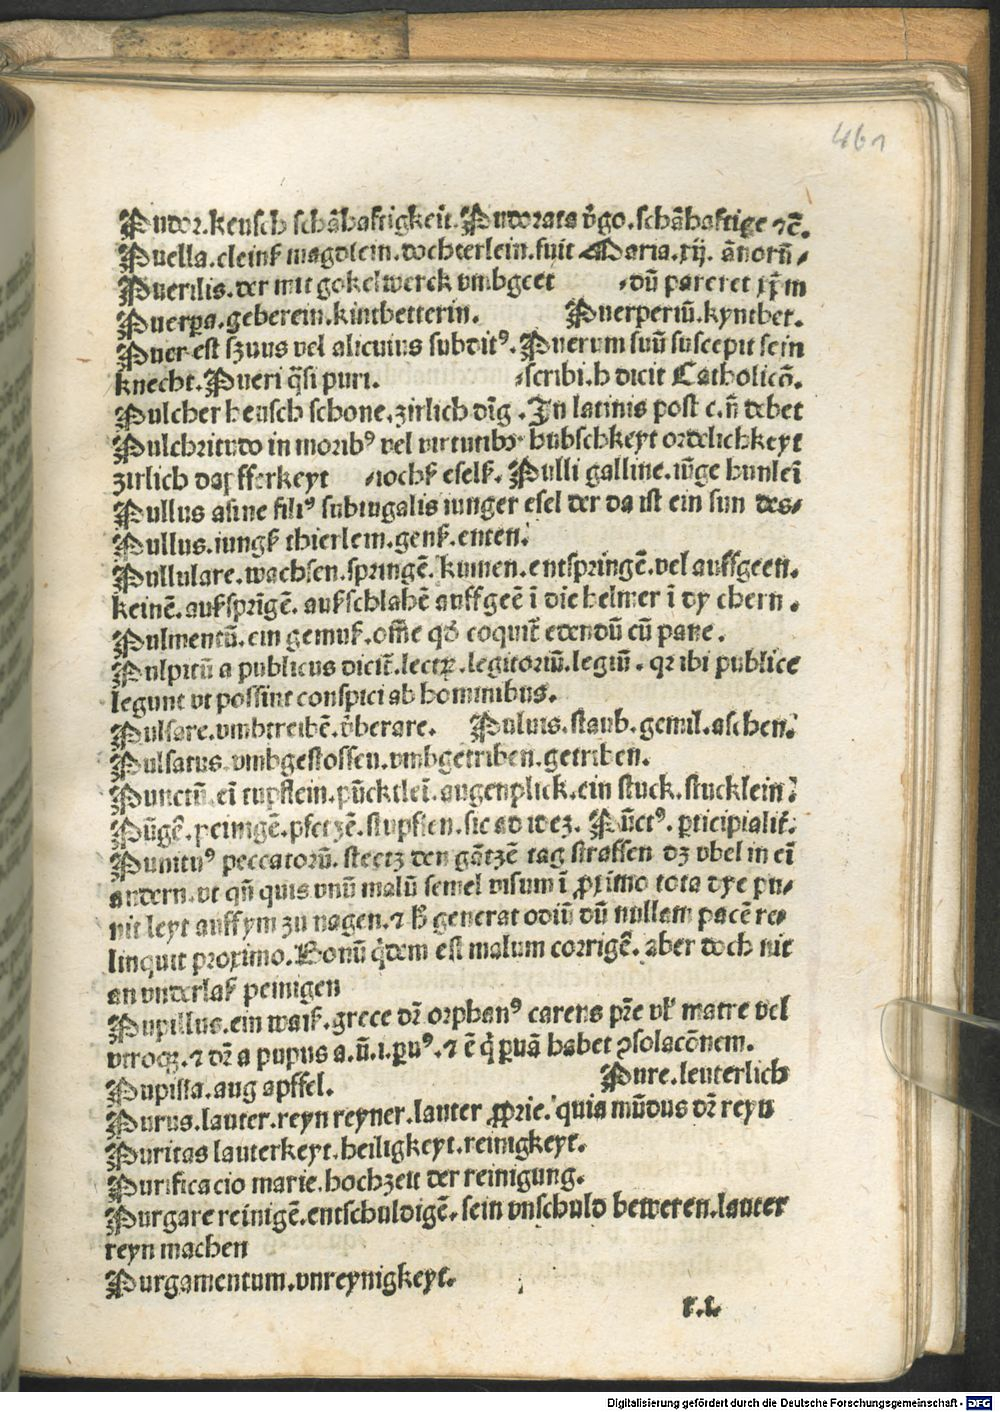 461
Pudor.keusch schāhaftigkeit. Pudorata v̄go.schāhaftige ⁊c̄.
Puella.cleinß magdlein.tochterlein.fuit Maria.xij. ānorū⸗
Puerilis.der mit gokelwerck vmbgeet ⸗dū pareret xp̄m
Puerpa.geberein.kintbetterin. Puerperiū.kyntbet.
Puer est szuus vel alicuius subdit⁹. Puerum suū suscepit sein
knecht.Pueri q̄si puri. ⸗scribi.h dicit Catholicō.
Pulcher heusch schone.zirlich dīg. In latinis post c.n̄ debet
Pulchritudo in morib⁹ vel virtutibꝫ hubschkeyt ordelichkeyt
zirlich dapfferkeyt ⸗iochß eselß. Pulli galline.iūge hunleī
Pullus asine fili⁹ subiugalis iunger esel der da ist ein sun des⸗
Pullus.iungß thierlein.genß.enten.
Pullulare.wachsen.springē.kumen.entspringē.vel auffgeen.
keinē.aufsprīgē.aufschlahē auffgeē ī die helmer ī dy ehern.
Pulmentū.ein gemuß.om̄e qđ coquit̄ edendū cū pane.
Pulpitū a publicus dicit̄.lectꝝ.legitoriū.legiū. qꝛ ibi publice
legunt vt possint conspici ab hominibus.
Pulsare.vmbtreibē.v̄berare. Puluis.staub.gemil.aschen.
Pulsatus.vmbgestossen.vmbgetriben.getriben.
Punctū.eī tupflein.pūcktleī.augenplick.ein stuck.stucklein.
Pūgē.peinigē.pfetzē.stupffen.sic ad idez. Pūct⁹.ꝑticipialiſ.
Punitu⁹ peccatorū.steetz den gātzē tag straffen dz vbel in eī
andern.vt qn̄ quis vnū malū semel visum ī ꝓximo tota dye pu⸗
nit leyt auff ym zu nagen.⁊ ß generat odiū dū nullam pacē re⸗
linquit proximo.Bonū q̇dem est malum corrigē.aber doch nit
an vnderlaß peinigen
Pupillus.ein waiß.grece dr̄ orphan⁹ carens pr̄e vl̄ matre vel
vtroqꝫ.⁊ dr̄ a pupus a.ū.i.ꝑu⁹.⁊ ē q̇ ꝑuā habet ꝯsolacōnem.
Pupilla.aug apffel. Pure.leuterlich
Purus.lauter.reyn reyner.lauter ꝓprie.quia mūdus dr̄ reyn
Puritas lauterkeyt.heiligkeyt.reinigkeyt.
Purificacio marie.hochzeit der reinigung.
Purgare reinigē.entschuldigē.sein vnschuld beweren.lauter
reyn machen
Purgamentum.vnreynigkeyt.
Digitalisierung gefördert durch die Deutsche Forschungsgemeinschaft - DFG